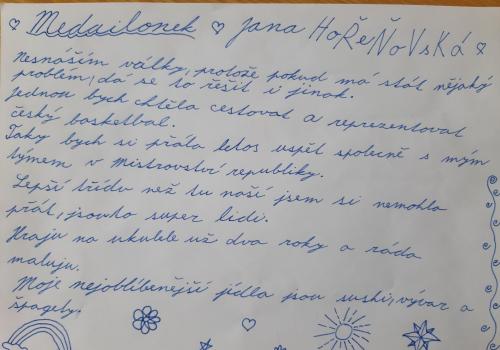 Medailonek Jana HoŘeŇoVsKá
Nesnáším války, protože pokud má stát nějaký
problém, dá se to řešit i jinak.
Jednou bych chtěla cestovat a reprezentovat
český basketbal.
Taky bych si přála letos uspět společně s mým
týmem v Mistrovství republiky.
Lepší třídu než tu naší jsem si nemohla
přát, jsou to super lidi.
Hraju na ukulele už dva roky a ráda
maluju.
Moje nejoblíbenější jídla jsou sushi, vývar a
špagety.